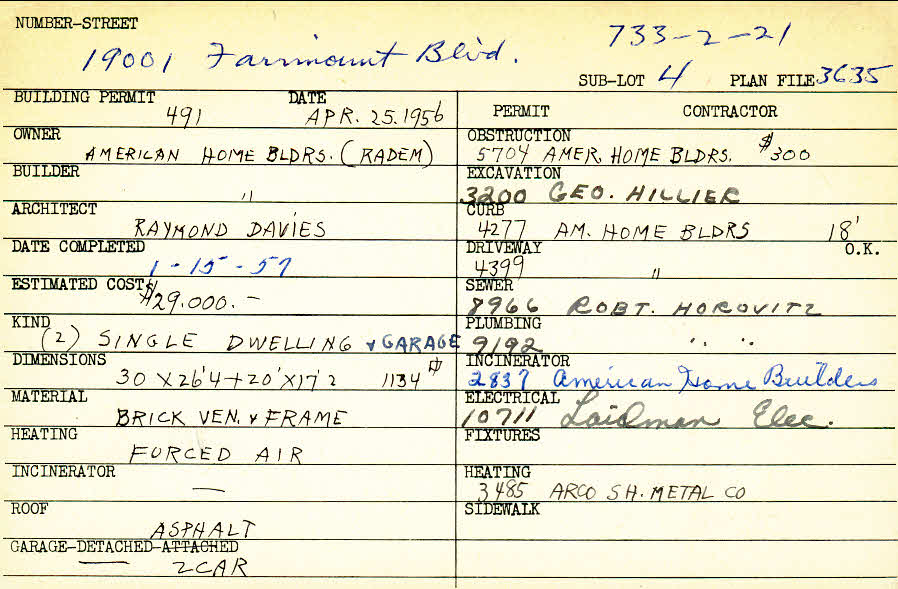 NUMBER-STREET
19001 Fairmount Blvd.
733-2-21
SUB-LOT 4 PLAN FILE 3635
BUILDING PERMIT DATE
491 APR. 25. 1956
OWNER
AMERICAN HOME BLDRS. (RADEM)
BUILDER
"
ARCHITECT
RAYMOND DAVIES
DATE COMPLETED
1-15-57
ESTIMATED COST
$29.000.-
KIND
(2) SINGLE DWELLING & GARAGE
DIMENSIONS
30 X 26'4 + 20' X 17'2 1134 #
MATERIAL
BRICK VEN. & FRAME
HEATING
FORCED AIR
INCINERATOR
—
ROOF
ASPHALT
GARAGE-DETACHED-ATTACHED
2 CAR
PERMIT CONTRACTOR
OBSTRUCTION
5704 AMER. HOME BLDRS. $300
EXCAVATION
3200 GEO. HILLIER
CURB
4277 AM. HOME BLDRS 18'
DRIVEWAY O.K.
4399 "
SEWER
8966 ROBT. HOROVITZ
PLUMBING
9192 " "
INCINERATOR
2837 American Home Builders
ELECTRICAL
10711 Laidman Elec.
FIXTURES
HEATING
3485 ARCO SH. METAL CO
SIDEWALK